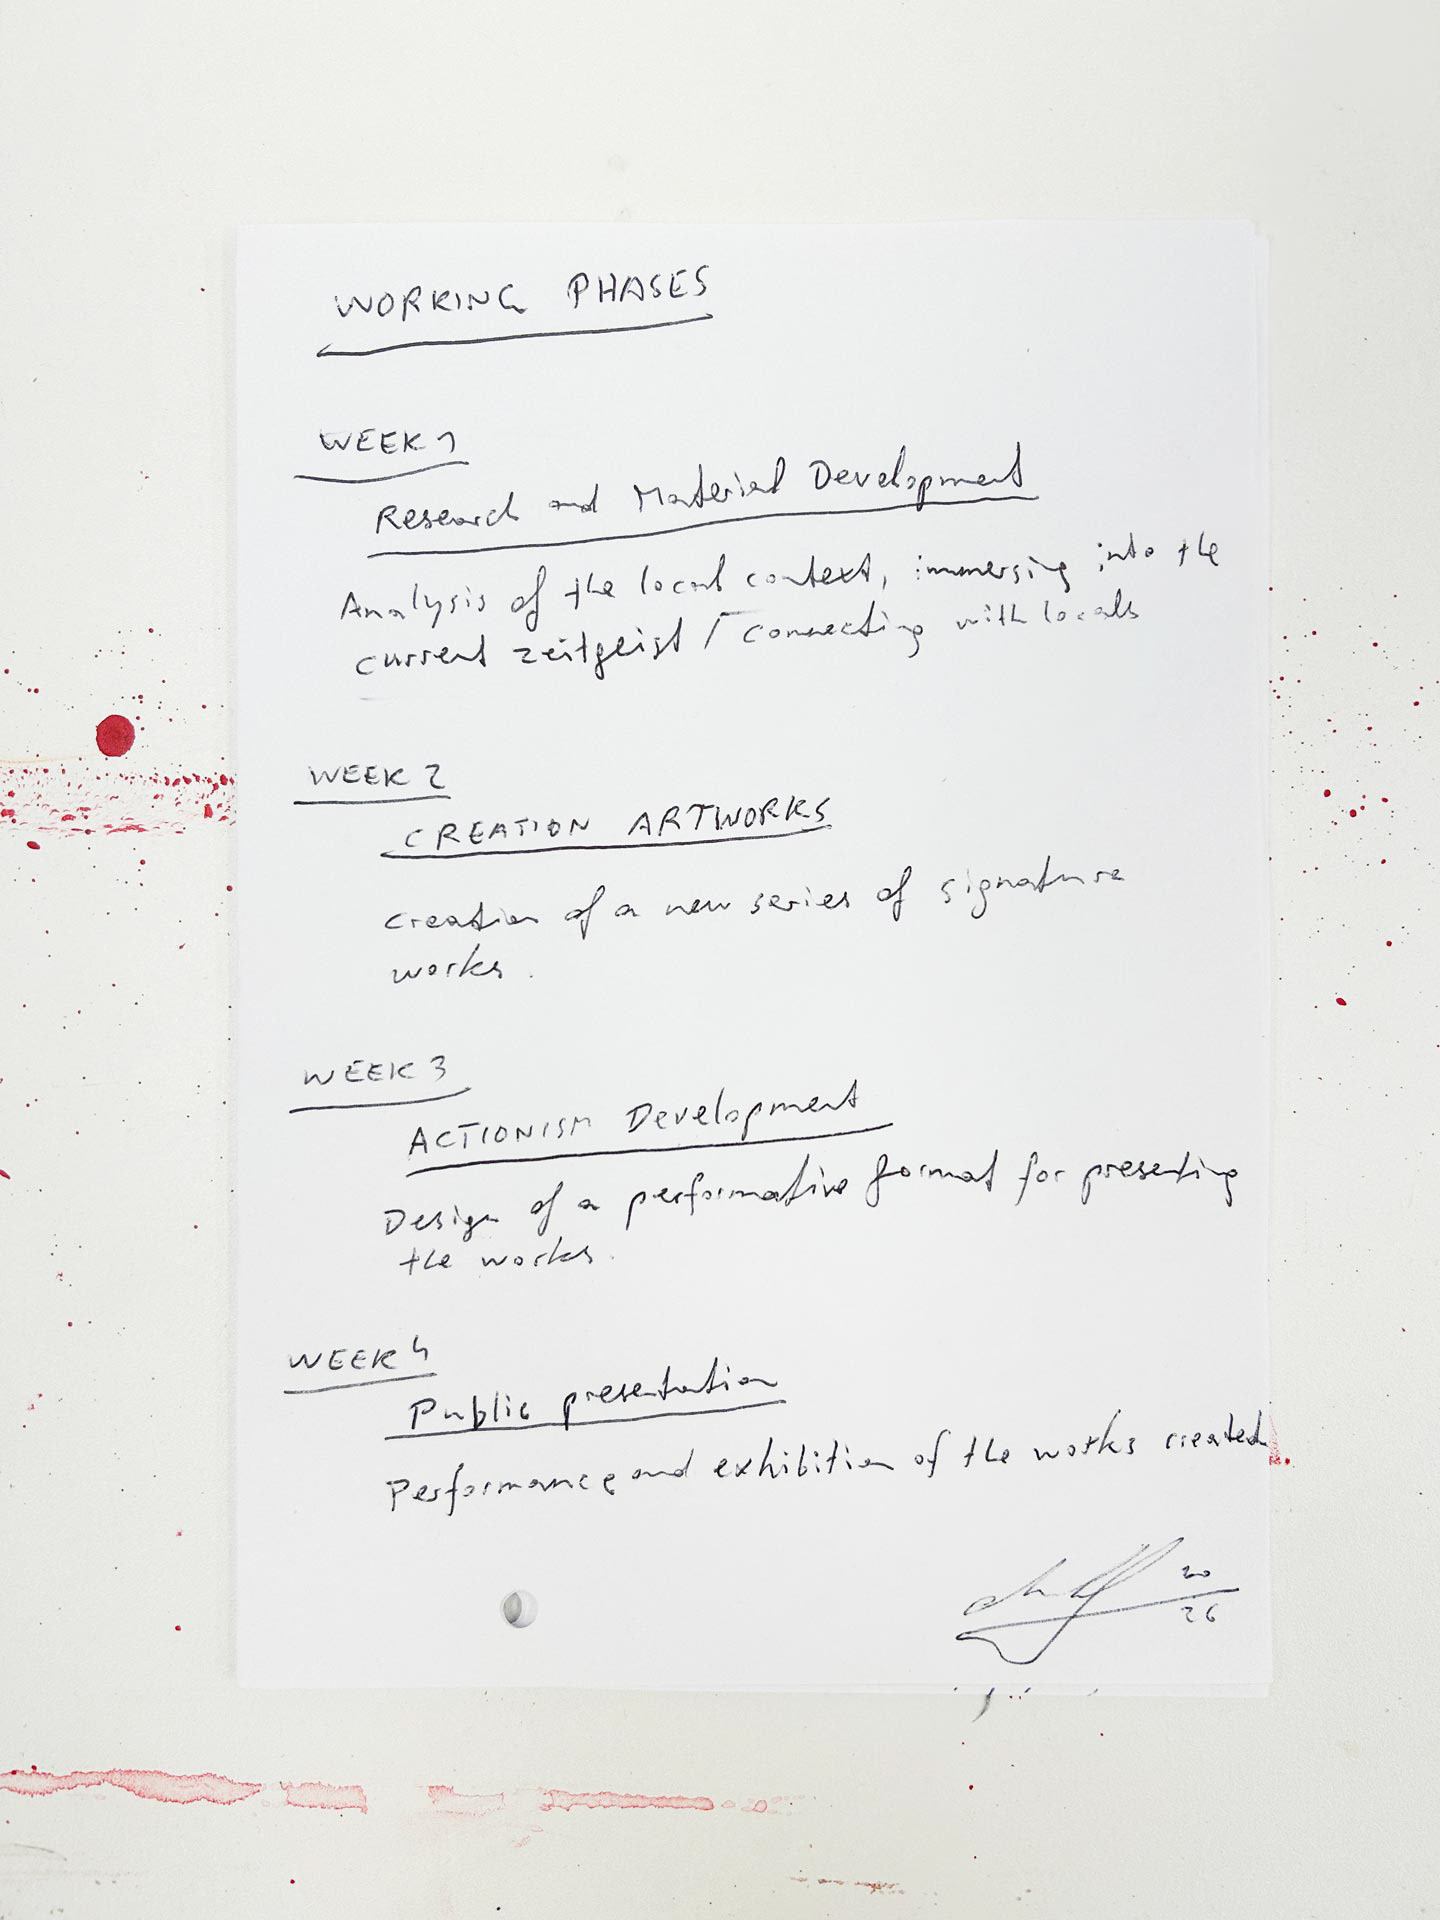 WORKING PHASES
WEEK 1
Research and Material Development
Analysis of the local context, immersing into the
current zeitgeist / connecting with locals
WEEK 2
CREATION ARTWORKS
creation of a new series of signature
works.
WEEK 3
ACTIONISM Development
Design of a performative format for presenting
the works.
WEEK 4
Public presentation
Performance and exhibition of the works created
20
26